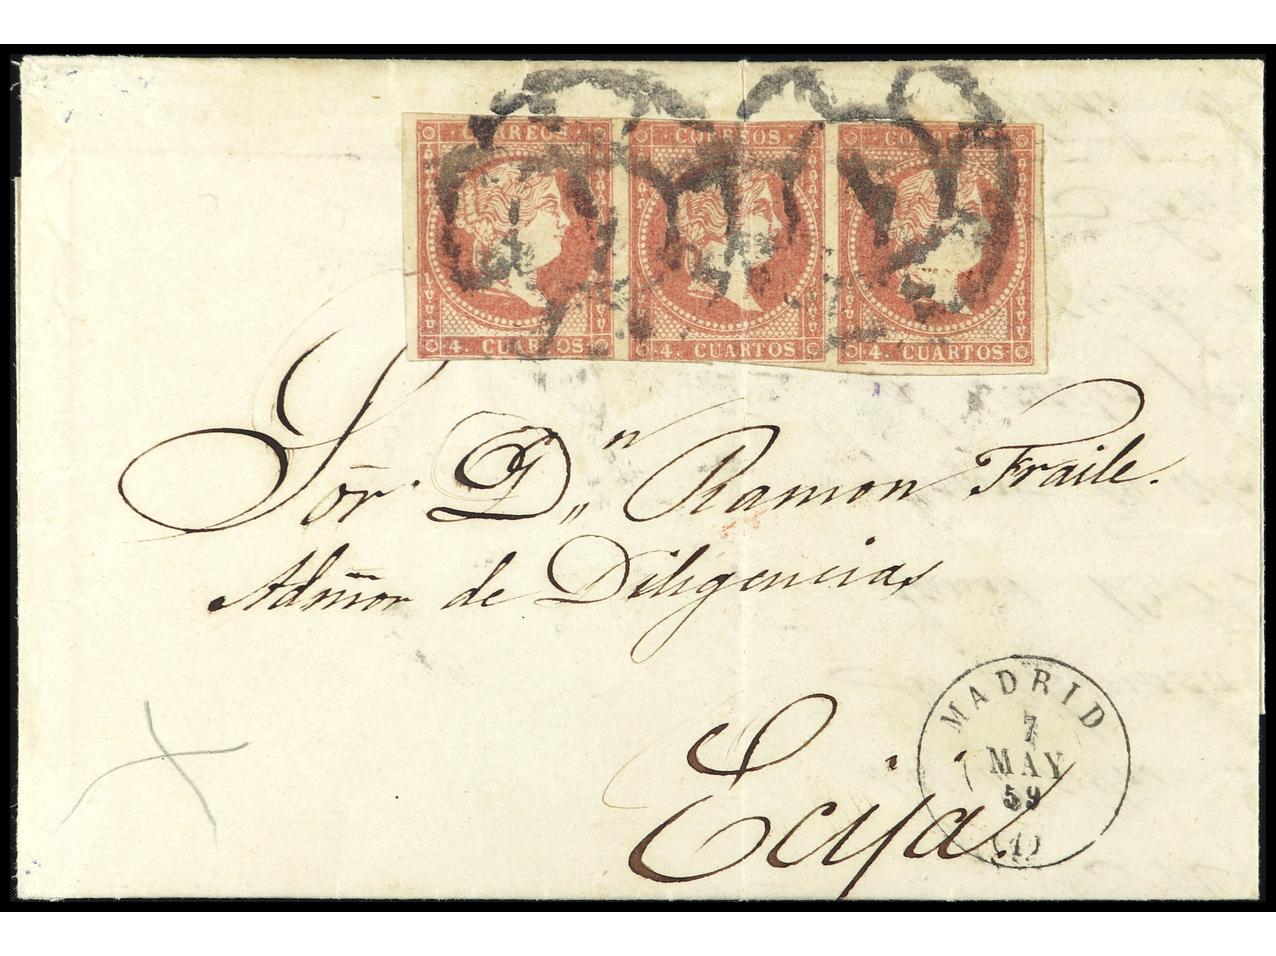 CORREOS CORREOS CORREOS
4. CUARTOS 4. CUARTOS 4. CUARTOS
Sor. D.n Ramon Fraile.
Admor de Diligencias
Ecija.
MADRID
7
MAY
59
(1)